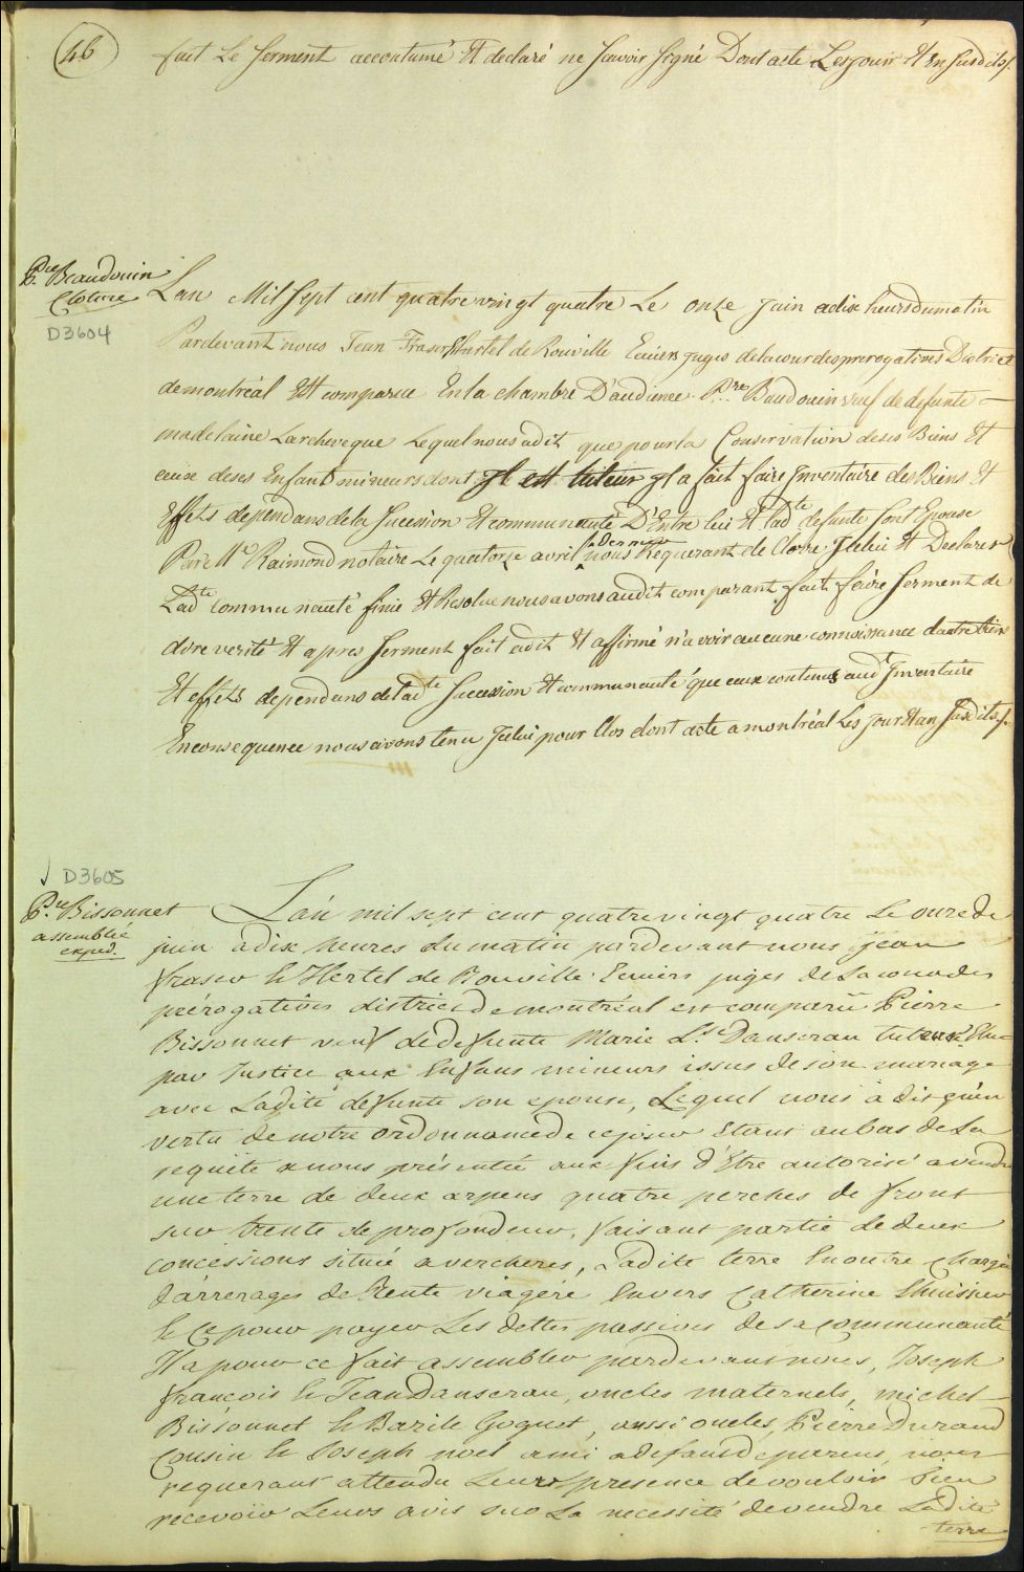 46
fait Le serment accoutumé Et declaré ne scavoir signé Dont acte Les jour Et En susdits/.
P.re Beaudouin
Cloture
D3604
Lan Mil sept cent quatre vingt quatre Le onze juin adix heures dumatin
Pardevant nous Jean Fraser & Hertel de Rouville Ecuiers juges delacour desprerogatives District
demontréal Est comparue Enla chambre D'audience P.re Baudouin veuf de defunte
madelaine Larcheveque Lequel nous adit que pour la Conservation deses Biens Et
ceux deses Enfants mineurs dont Jl est tuteur jl a fait faire Jnventaire des Biens Et
Effets dependans dela succession Et communauté D'Entre lui Et lad.te defunte sont Epouse
Par M.e Raimond notaire Le quatorze avril Dernier nous Requerant de Clore Jcelui Et Declarer
Lad.te communauté finie Et Resolue nous avons audit comparant fait faire serment de
dire verité Et apres serment fait adit Et affirmé n'avoir aucune connoissance dautre biens
Et effets dependans delad.te succession Et communauté que ceux contenus aud.t Jnventaire
En consequence nous avons tenu Jcelui pour Clos dont acte a montréal Les jour Et an susdits/.
D3605
P.re Bissonnet
assemblée
exped.
L'an mil sept cent quatre vingt quatre Le onze de
juin a dix heures du matin pardevant nous jean
fraser & Hertel de Rouville Ecuiers juges de La cour des
prérogatives district de montréal est comparu Pierre
Bissonnet veuf de defunte Marie L.se Danserau tuteur Elu
par Justice aux Enfans mineurs issus de son mariage
avec Ladite defunte son epouse, Lequel nous a dit qu'en
vertu de notre ordonnance de ce jour Etant au bas de La
requête a nous présentée aux fins d'être autorisé a vendre
une terre de deux arpens quatre perches de front
sur trente de profondeur, faisant partie de deux
concessions située a vercheres, Ladite terre En outre chargée
d'arrerages de Rente viagere Envers Catherine Lhuissier
& Ce pour payer Les dettes passives de sa communauté
Il a pour ce fait assembler pardevant nous, Joseph
françois & Jean Danserau, oncles maternels, michel
Bissonnet & Bazile Goguet, aussi oncles, Pierre Durand
Cousin & Joseph noel ami a defaut de parens, nous
requerant attendu Leurs presence de vouloir bien
recevoir Leurs avis sur La necessité de vendre Ladite
terre